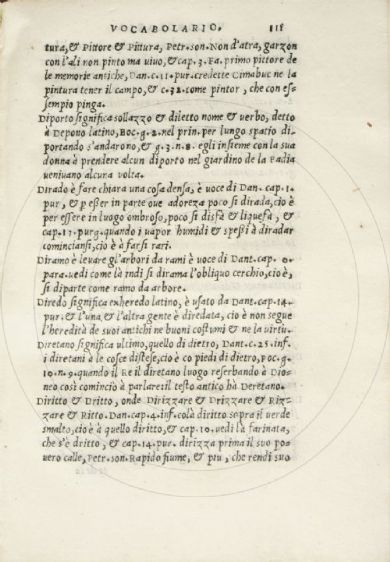 VOCABOLARIO. 118
tura, & Pittore & Pittura, Petr. son. Non d'atra, garzon
con l'ali non pinto ma uiuo, & cap. 3. Fa. primo pittore de
le memorie antiche, Dan. c. 11. pur. credette Cimabue ne la
pintura tener il campo, & c. 32. come pintor, che con es-
sempio pinga.
Diporto significa sollazzo & diletto nome & uerbo, detto
à Depouo latino, Boc. g. 2. nel prin. per lungo spatio di-
portando s'andarono, & g. 3. n. 8. egli insieme con la sua
donna à prendere alcun diporto nel giardino de la Badia
ueniuano alcuna volta.
Dirado è fare chiara una cosa densa, è uoce di Dan. cap. 1.
pur, & per esser in parte oue adoreza poco si dirada, cio è
per essere in luogo ombroso, poco si disfà & liquefà, &
cap. 17. purg. quando i uapor humidi & spessi à diradar
cominciansi, cio è à farsi rari.
Diramo è leuare gl'arbori da rami è uoce di Dant. cap. 0.
para. uedi come là indi si dirama l'obliquo cerchio, cio è,
si diparte come ramo da arbore.
Diredo significa exheredo latino, è usato da Dant. cap. 14.
pur. & l'una, & l'altra gente è diredata, cio è non segue
l'heredità de suoi antichi ne buoni costumi & ne la uirtu.
Diretano significa ultimo, quello di dietro, Dant. c. 25. inf.
i diretani à le cosce distese, cio è co piedi di dietro, Boc. g.
10. n. 9. quando il Re il diretano luogo reserbando à Dio-
neo così cominciò à parlare: il testo antico hà Deretano.
Diritto & Dritto, onde Dirizzare & Drizzare & Riz-
zare & Ritto. Dan. cap. 4. inf. colà diritto sopra il uerde
smalto, cio è à quello diritto, & cap. 10. uedi là farinata,
che s'è dritto, & cap. 14. pur. dirizza prima il suo po-
uero calle, Petr. son. Rapido fiume, & piu, che rendi suo